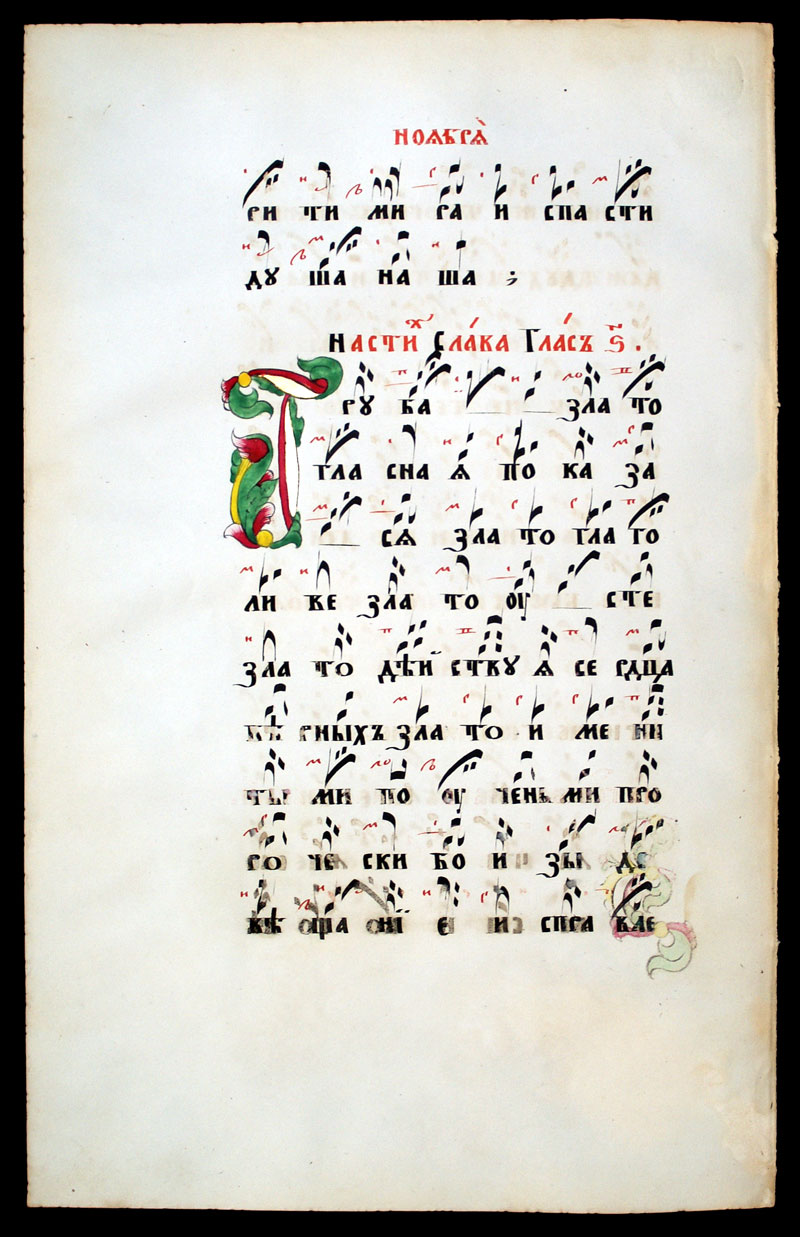 НОЯБРѦ̀
РИ ТИ МИ РА И СПА СТИ
ДУ ША НА ША ;
НАСТИⷯ СЛА́ВА ГЛА́СЪ Ѕ҃ .
ТРУ БА ЗЛА ТО
ГЛА СНА Ѧ ПО КА ЗА
СѦ ЗЛА ТО ГЛА ГО
ЛИ ВЕ ЗЛА ТО ОУ СТЕ
ЗЛА ТО ДѢЙ СТВУ Ѧ СЕ РДЦА
ВѢ РНЫХЪ ЗЛА ТО И МЕ НИ
ТЫ МИ ПО ОУ ЧЕНЬ МИ ПРО
РО ЧЕ СКИ БО И ЗЫ ДЕ
ВѢ ЩА НЇ Е И СПРА ВЛЕ